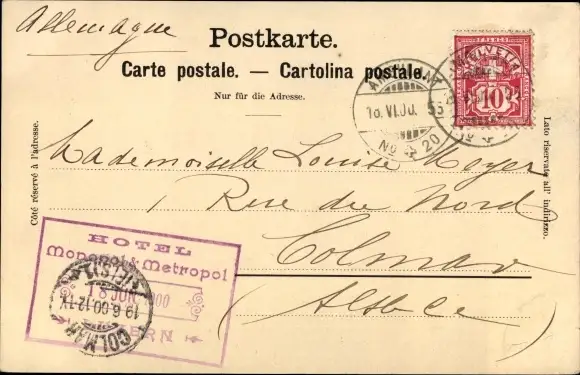 Allemagne
Postkarte.
Carte postale. — Cartolina postale.
Nur für die Adresse.
Côté réservé à l'adresse.
Lato riservato all' indirizzo.
FRANCO
HELVETIA
10
18.VI.00.
No 20
Mademoiselle Louise Meyer
1 Rue du Nord
Colmar
(Alsace)
HOTEL
Monopol & Metropol
18 JUN 1900
BERN
COLMAR (ELS)
19.6.00.12-1V.